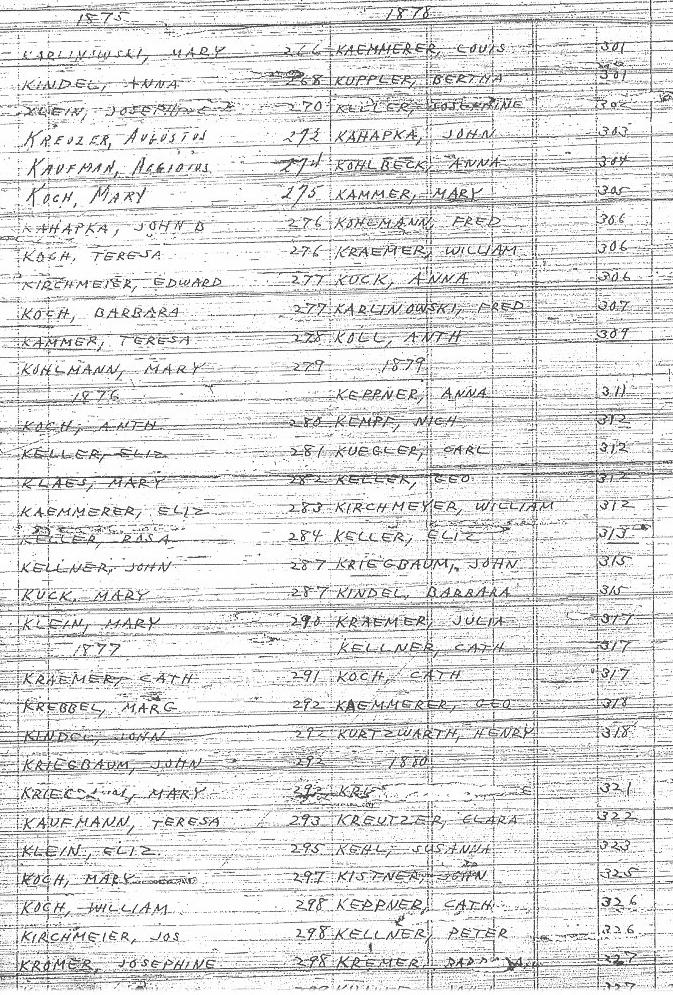 1875
KARLINSWSKI, MARY 266
KINDEL, ANNA 268
KLEIN, JOSEPHINE 270
KREUZER, AUGUSTUS 272
KAUFMAN, AEGIDIUS 274
KOCH, MARY 275
KAHAPKA, JOHN B 276
KOCH, TERESA 276
KIRCHMEIER, EDWARD 277
KOCH, BARBARA 277
KAMMER, TERESA 278
KOHLMANN, MARY 279
1876
KOCH, ANTH 280
KELLER, ELIZ 281
KLAES, MARY 282
KAEMMERER, ELIZ 283
KELLER, ROSA 284
KELLNER, JOHN 287
KUCK, MARY 287
KLEIN, MARY 290
1877
KRAEMER, CATH 291
KREBBEL, MARG 292
KINDEL, JOHN 292
KRIEGBAUM, JOHN 292
MARY 292
KAUFMANN, TERESA 293
KLEIN, ELIZ 295
KOCH, MARY 297
KOCH, WILLIAM 298
KIRCHMEIER, JOS 298
KROMER, JOSEPHINE 298
1878
KAEMMERER, LOUIS 301
KUPPLER, BERTHA 301
KELLER, JOSEPHINE 302
KAHAPKA, JOHN 303
KOHLBECK, ANNA 304
KAMMER, MARY 305
KOHLMANN, FRED 306
KRAEMER, WILLIAM 306
KUCK, ANNA 306
KARLINOWSKI, FRED 307
KOLL, ANTH 309
1879
KEPPNER, ANNA 311
KEMPF, NICH 312
KUEGLER, CARL 312
KELLER, GEO 312
KIRCHMEYER, WILLIAM 312
KELLER, ELIZ 313
KRIEGBAUM, JOHN 315
KINDEL, BARBARA 315
KRAEMER, JULIA 317
KELLNER, CATH 317
KOCH, CATH 317
KAEMMERER, GEO 318
KURTZWARTH, HENRY 318
1880
321
KREUTZER, CLARA 322
KEHL, SUSANNA 323
KISTNER, JOHN 325
KEPPNER, CATH 326
KELLNER, PETER 326
KREMER, 327